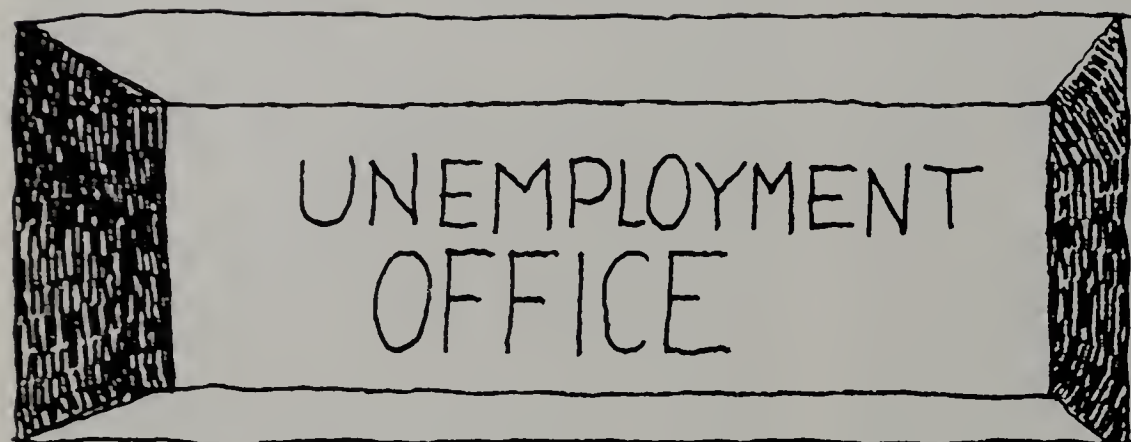 UNEMPLOYMENT
OFFICE